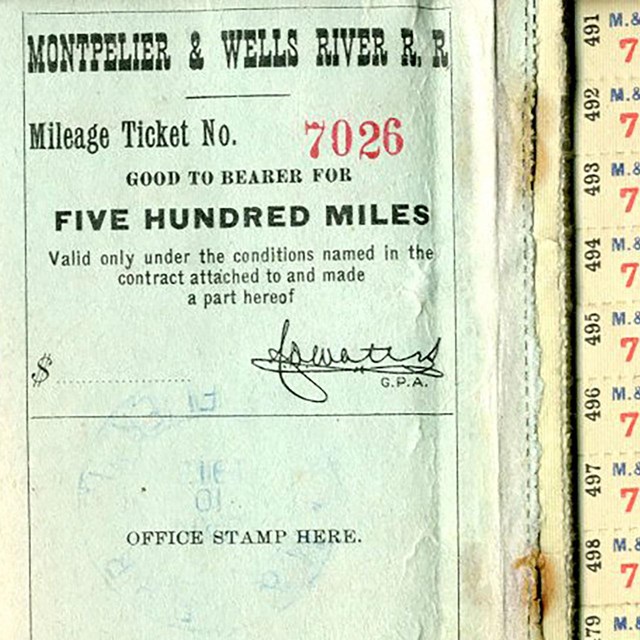 MONTPELIER & WELLS RIVER R. R
Mileage Ticket No. 7026
GOOD TO BEARER FOR
FIVE HUNDRED MILES
Valid only under the conditions named in the
contract attached to and made
a part hereof
$
G.P.A.
OFFICE STAMP HERE.
491 M.&
7
492 M.&
7
493 M.&
7
494 M.&
7
495 M.&
7
496 M.&
7
497 M.&
7
498 M.&
7
79 M.&